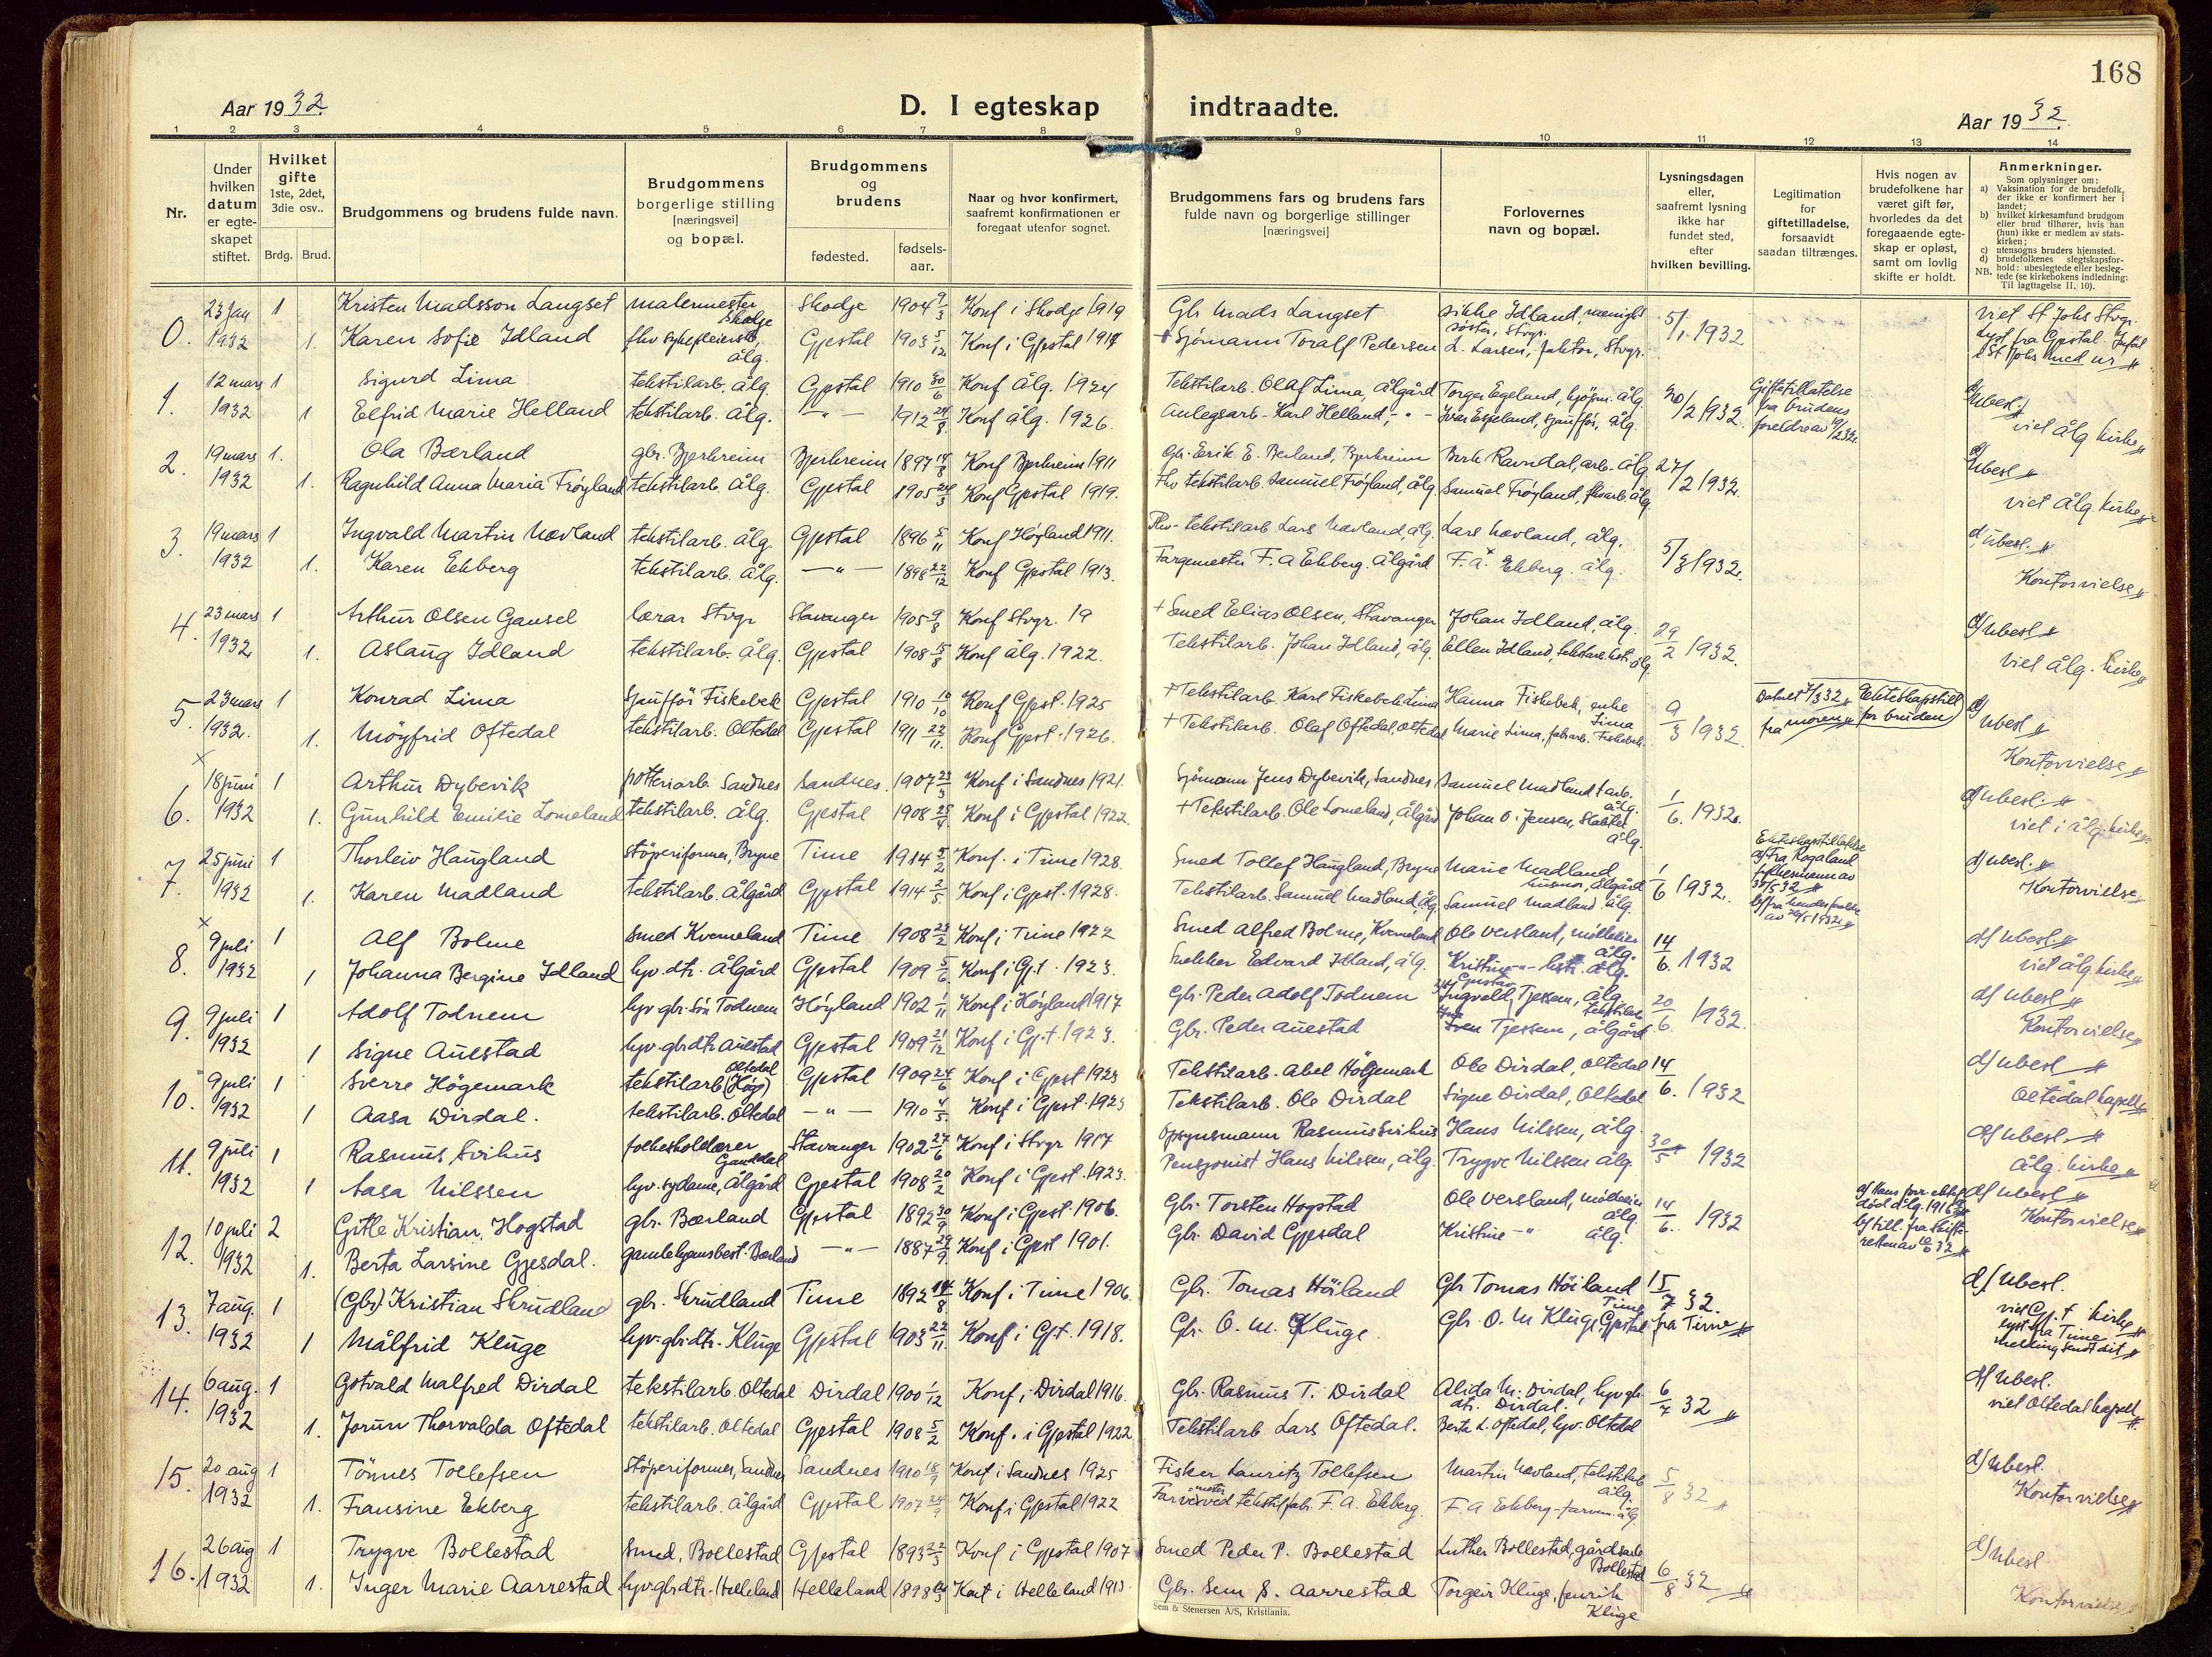 168
Aar 1932.
D. I egteskap indtraadte.
Aar 1932.
1 2 3 4 5 6 7 8 9 10 11 12 13 14
Nr.
Under hvilken datum er egteskapet stiftet.
Hvilket gifte 1ste, 2det, 3die osv..
Brdg. Brud.
Brudgommens og brudens fulde navn.
Brudgommens borgerlige stilling [næringsvei] og bopæl.
Brudgommens og brudens
fødested.
fødsels-aar.
Naar og hvor konfirmert, saafremt konfirmationen er foregaat utenfor sognet.
Brudgommens fars og brudens fars fulde navn og borgerlige stillinger [næringsvei]
Forlovernes navn og bopæl.
Lysningsdagen eller, saafremt lysning ikke har fundet sted, efter hvilken bevilling.
Legitimation for giftetilladelse, forsaavidt saadan tiltrænges.
Hvis nogen av brudefolkene har været gift før, hvorledes da det foregaaende egteskap er opløst, samt om lovlig skifte er holdt.
Anmerkninger.
Som oplysninger om:
a) Vaksination for de brudefolk, der ikke er konfirmert her i landet;
b) hvilket kirkesamfund brudgom eller brud tilhører, hvis han (hun) ikke er medlem av statskirken;
c) utensogns bruders hjemsted.
d) brudefolkenes slegtskapsforhold: ubeslegtede eller beslegtede (se kirkebokens indledning:
NB. Til iagttagelse II, 10).
0. 23 jan 1 Kristen Madsson Langset malermester Skodje Skodje 1904 9/3 Konf i Skodje 1919 Gbr Mads Langset sikke Idland, menighs søster, Stvgr. 5/1 1932 viet St Johs Stvgr.
1932 1. Karen Sofie Idland fhv sykepleierske, ålg. Gjestal 1903 5/12 Konf i Gjestal 1917 + Sjømann Toralf Pedersen L. Larsen, faktor, Stvgr. lyst fra Gjestal
1. 12 mars 1 Sigurd Lima tekstilarb. ålg. Gjestal 1910 30/6 Konf ålg. 1924 Tekstilarb. Olaf Lima, ålgård Torger Egeland, kjøpm. ålg. 20/2 1932. Giftetillatelse fra brudens foreldre av d/ ubesl.
1932 1 Elfrid Marie Helland tekstilarb. ålg. -"- 1912 24/8 Konf ålg. 1926. Anlegsarb. Karl Helland, -"- Ivar Espeland, sjauffør, ålg viet ålg kirke
2. 19 mars 1. Ola Bærland gbr. Bjerkreim Bjerkreim 1897 14/8 Konf Bjerkreim 1911 Gbr. Eerik E. Berland, Bjerkreim Berth Ravndal, arb. ålg 27/2 1932. d/ ubesl
1932 1. Ragnhild Anna Maria Frøyland tekstilarb. ålg. Gjestal 1905 24/3 Konf Gjestal 1919. Fhv tekstilarb. Samuel Frøyland, ålg Samuel Frøyland, ålg. viet ålg. kirke
3. 19 mars 1 Ingvald Martin Nævland tekstilarb. ålg. Gjestal 1896 5/11 Konf Høyland 1911. Fhv. tekstilarb. Lars Nævland, ålg. Lars Nævland, ålg. 5/3 1932. d, ubesl.
1932 1. Karen Ekberg tekstilarb. ålg. -"- 1898 22/12 Konf Gjestal 1913. Fargemester F. A Ekberg. ålgård F. A. Ekberg. ålg. Kontorvielse
4. 23 mars 1 Arthur Olsen Gausel lærar Stvgr Stavanger 1905 9/8 Konf Stvgr. 19 + Smed Eelias Olsen, Stavanger Johan Idland, ålg. 29/2 1932. d/ ubesl
1932 1. Aslaug Idland tekstilarb. ålg. Gjestal 1908 15/8 Konf ålg. 1922. Tekstilarb. Johan Idland, ålg. Ellen Idland, ålg. viet ålg. kirke
5. 23 mars 1 Konrad Lima Sjauffør Fiskebek Gjestal 1910 10/10 Konf Gjest. 1925 + Tekstilarb. Karl Fiskebek Lima Hanna Fiskebek, enke Lima 9/3 1932. Datert 7/3 32 fra moren Ekteskapstill for bruden d/ ubesl
1932. 1. Møyfrid Oftedal tekstilarb. Oltedal Gjestal 1911 23/11. Konf Gjest. 1926. + Tekstilarb. Olaf Oftedal, Oltedal Marie Lima, fabrarb. Fiskebek. Kontorvielse
6. 18 juni 1 Arthur Dybevik potteriarb. Sandnes Sandnes. 1907 23/3 Konf i Sandnes 1921. Sjömann Jens Dybevik, Sandnes Samuel Madland t arb. ålg. 1/6. 1932. d/ ubesl.
1932 1. Gunhild Emilie Lomeland tekstilarb. ålg. Gjestal 1908 25/4 Konf i Gjestal 1922. + Tekstilarb. Ole Lomeland, ålgård Johan O. Jensen, ålg. viet i ålg. kirke
7. 25 juni 1 Thorleiv Haugland støperiformer, Bryne Time 1914 5/2 Konf. i Time 1928. Smed Tollef Haugland, Bryne Marie Madland husmor, ålgård 1/6 1932. Ekteskapstillatelse a/ Fra Rogaland fylkesmann av d/ ubesl.
1932 1. Karen Madland tekstilarb. Ålgård Gjestal 1914 3/5 Konf i Gjest. 1928. Tekstilarb. Samuel Madland, ålg. Samuel Madland ålg. Kontorvielse
8. 9 juli 1 Alf Bolme Smed Kverneland Time 1908 23/2 Konf i Time 1922 Smed Alfred Bolme, Kverneland Ole Versland, mölleeier ålg. 14/6. 1932 d/ ubesl.
1932 1 Johanna Bergine Idland hjv. dtr. Ålgård Gjestal 1909 5/6 Konf i Gjt. 1923. Snekker Edvard Idland, ålg. Kristine -"- hstr. ålg. viet ålg kirke
9. 9 juli 1 Adolf Todnem hjv gbr. sön Todnem Höyland 1902 1/11 Konf i Höyland 1917 Gbr. Peder Adolf Todnem Gustav Tjessem, ålg. tekstilarb 20/6. 1932. d/ ubesl
1932 1 Signe Auestad hjv. gbrdtr. Auestad Gjestal 1909 21/12 Konf i Gjt. 1923. Gbr. Peder Auestad Sven Tjessem, ålgård Kontorvielse
10. 9 juli 1 Sverre Högemark tekstilarb (Högs) Oltedal Gjestal 1909 24/6 Konf i Gjest 1923 Tekstilarb. Abel Högemark Ole Dirdal, Oltedal 14/6. 1932 d/ ubesl
1932 1 Aasa Dirdal. tekstilarb. Oltedal -"- 1910 4/5. Konf i Gjest. 1925 Tekstilarb. Ole Dirdal Signe Dirdal, Oltedal Oltedal kapell
11. 9 juli 1 Rasmus Svihus folkeskolelærer Ganddal Stavanger 1902 27/6 Konf i Stvgr 1917 Opsynsmann Rasmus Svihus Hans Nilssen, ålg. 30/5 1932 d/ ubesl.
1932 1 Aasa Nilssen hjv. sydame, Ålgård Gjestal 1908 20/2 Konf i Gjest. 1923. Pensjonist Hans Nilssen, ålg. Trygve Nilssen ålg. Ålg. kirke
12. 10 juli 2 Gitle Kristian Hogstad gbr. Bærland Gjestal 1892 30/9 Konf i Gjest 1906. Gbr. Torsten Hogstad Ole Versland, mölleeier ålg. 14/6. 1932 d/ ubesl
1932 1. Berta Larsine Gjesdal. Bærland -"- 1887 29/9 Konf i Gjest 1901. Gbr. David Gjesdal Kristine -"- ålg. Kontorvielse
13. 7 aug. 1 (Gbr) Kristian Skrudland gbr. Skrudland Time 1892 14/8 Konf. i Time 1906. Gbr. Tomas Höiland Gbr Tomas Höiland Time 15/7 32. d/ ubesl.
1932 1 Målfrid Kluge hjv. gbr. dtr. Kluge Gjestal 1903 22/11. Konf i Gjt. 1918. Gbr. O. M. Kluge. Gbr. O. M Kluge, Gjestal fra Time viet Gjt kirke lyst fra Time melding sendt dit
14. 6 aug. 1 Gotvald Malfred Dirdal tekstilarb. Oltedal Dirdal 1900 1/12 Konf. i Dirdal 1916. Gbr. Rasmus T. Dirdal Alida M. Dirdal, hjv gbr. dtr. Dirdal. 6/7 32 d/ ubesl.
1932 1. Jorun Thorvalda Oftedal tekstilarb. Oltedal Gjestal 1908 5/2 Konf. i Gjestal 1922 Tekstilarb Lars Oftedal. Berta L. Oftedal, hjv. Oltedal viet Oltedal kapell
15. 20 aug 1 Tönnes Tollefsen Støperiformer, Sandnes Sandnes 1910 18/9 Konf i Sandnes 1925 Fisker Lauritz Tollefsen Martin Nævland, tekstilarb ålg. 5/8 32 d/ ubesl.
1932 1. Fransine Ekberg tekstilarb. Ålgård Gjestal 1907 24/9 Konf i Gjestal 1922 Farvemester ved tekstilfabr. F. A. Ekberg. F. A Ekberg - farvem. ålg. Kontorvielse
16. 26 aug 1 Trygve Bollestad Smed, Bollestad Gjestal 1893 22/3 Konf i Gjestal 1907 Smed Peder P. Bollestad Luther Bollestad, gårdsarb Bollestad 6/8 32 d/ ubesl
1932 1. Inger Marie Aarrestad hjv gbrdtr. Helleland Helleland 1898 Konf i Helleland 1913. Gbr. Sem S. Aarrestad Torgeir Kluge, fenrik Kluge Kontorvielse
Sem & Stenersen A/S, Kristiania.